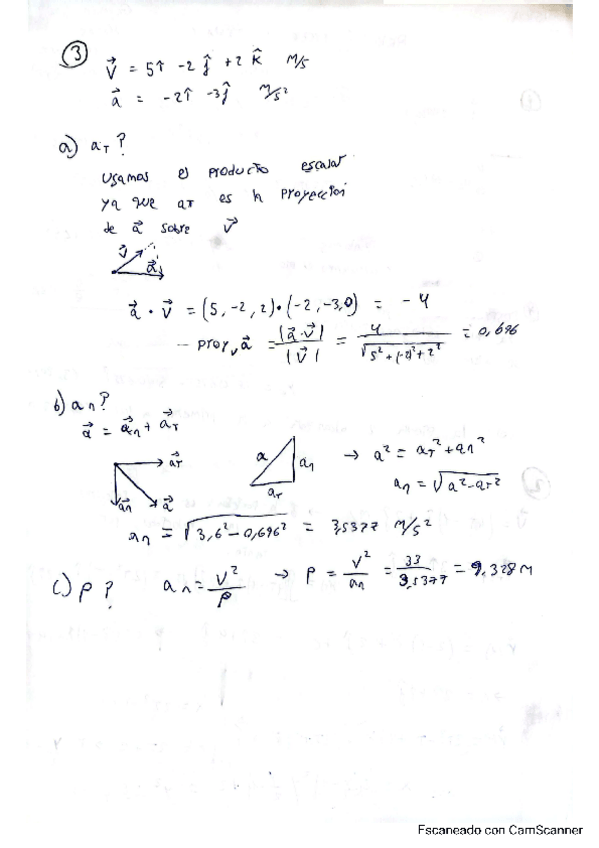 ③ V⃗ = 5î -2ĵ +2k̂ m/s
a⃗ = -2î -3ĵ m/s²
a) aT ?
Usamos el producto escalar
ya que aT es la proyección
de a⃗ sobre V⃗
V⃗
a⃗
a⃗ · V⃗ = (5, -2, 2)·(-2, -3, 0) = -4
- proyV a⃗ = |a⃗·V⃗| / |V⃗| = 4 / √5²+(-2)²+2² = 0,696
b) an ?
a⃗ = a⃗n + a⃗T
a⃗T
a⃗n a⃗
a an
aT
→ a² = aT² + an²
an = √a²-aT²
an = √3,6² - 0,696² = 3,5377 m/s²
c) ρ ? an = V²/ρ → ρ = V²/an = 33/3,5377 = 9,328 m
Escaneado con CamScanner